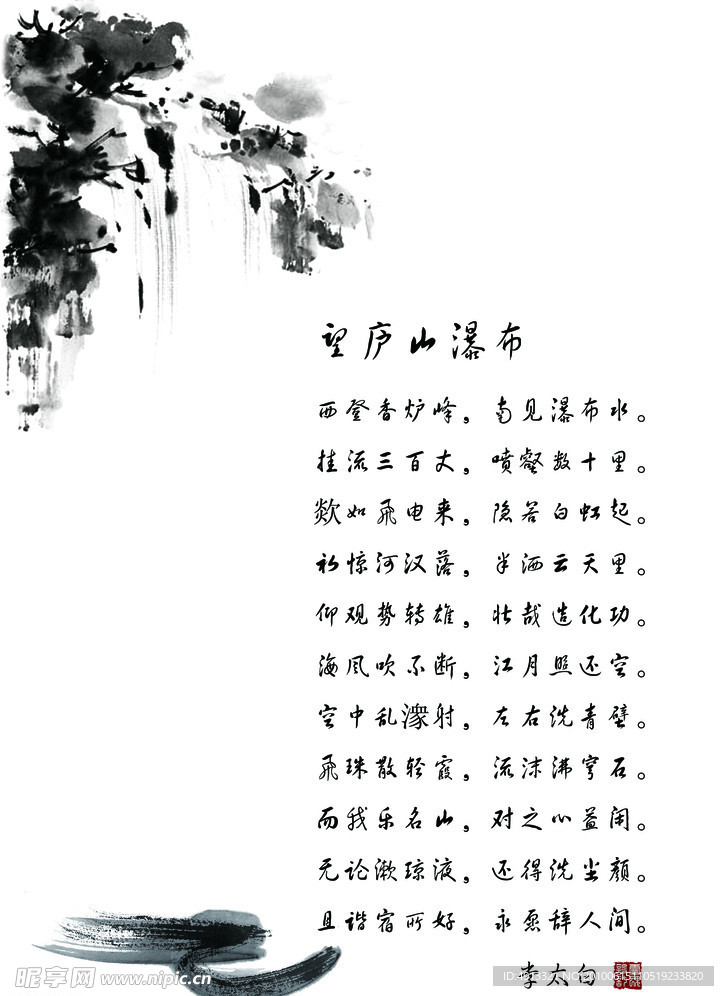 望庐山瀑布
西登香炉峰，南见瀑布水。
挂流三百丈，喷壑数十里。
欻如飞电来，隐若白虹起。
初惊河汉落，半洒云天里。
仰观势转雄，壮哉造化功。
海风吹不断，江月照还空。
空中乱潀射，左右洗青壁。
飞珠散轻霞，流沫沸穹石。
而我乐名山，对之心益闲。
无论漱琼液，还得洗尘颜。
且谐宿所好，永愿辞人间。
李太白
昵享网 www.nipic.cn